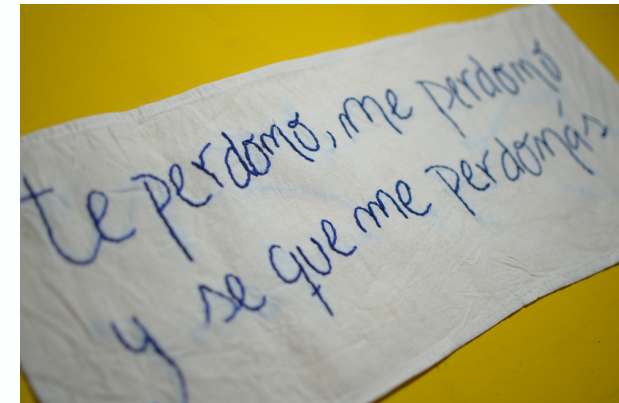 te perdono, me perdono
y se que me perdonás